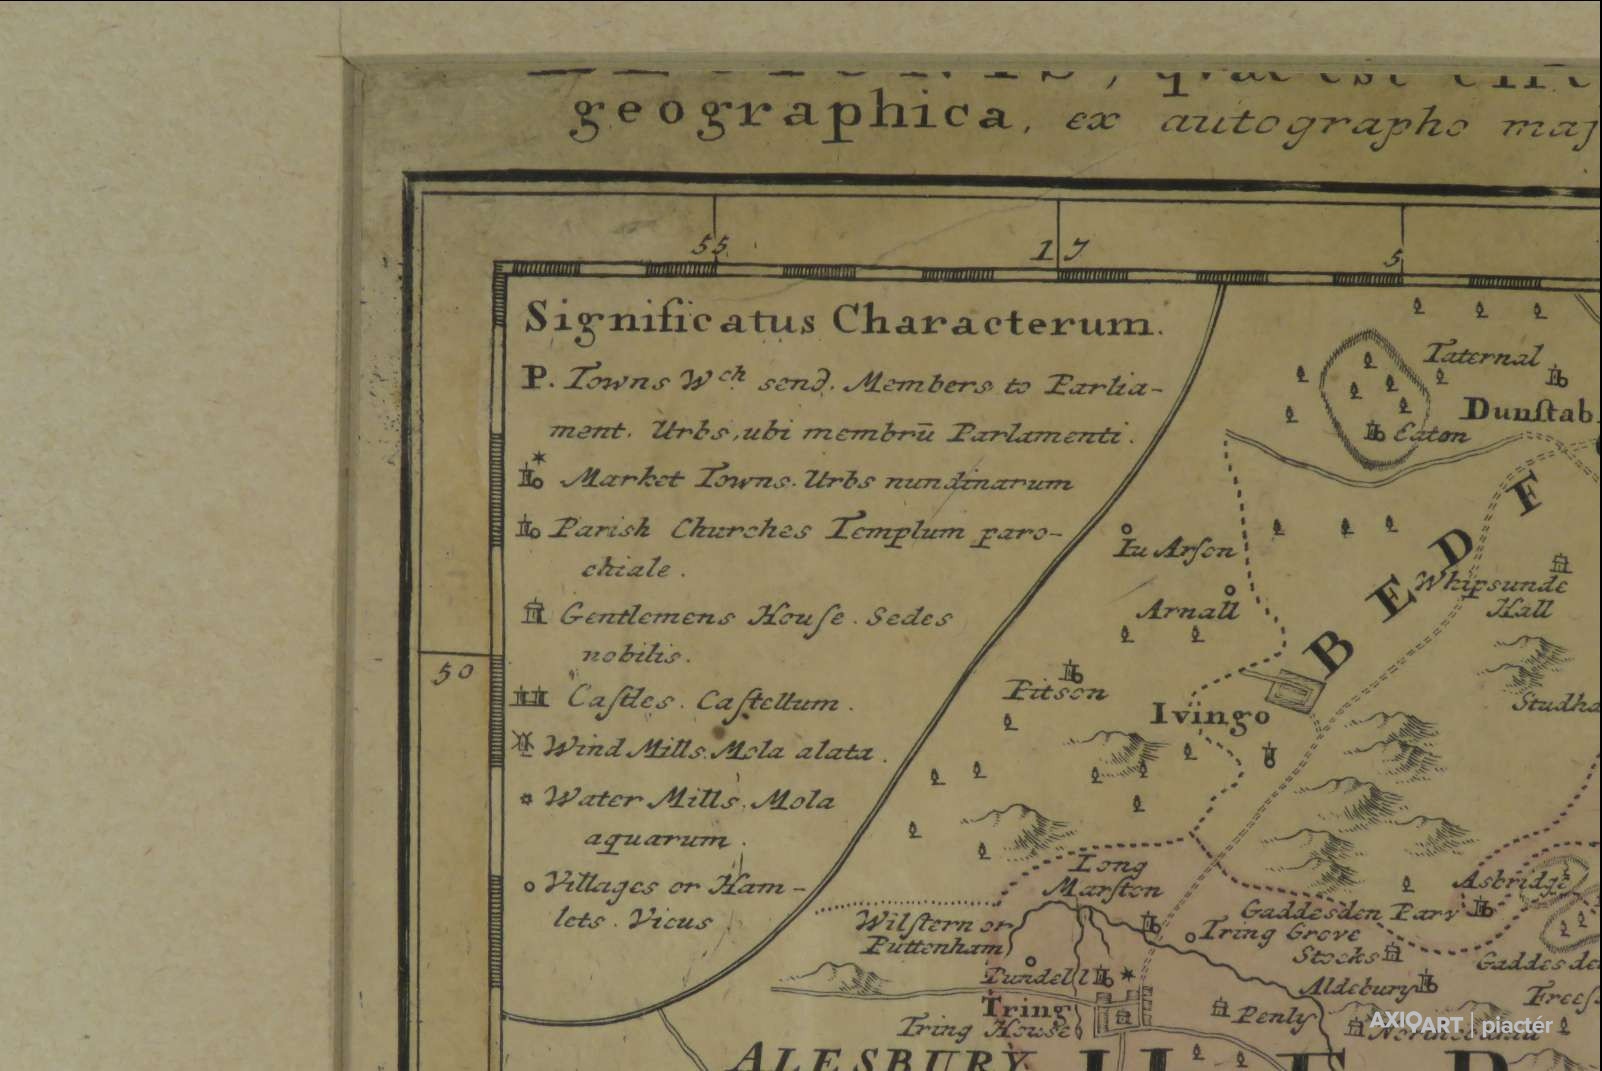 geographica, ex autographo maj
55
17
5
50
Significatus Characterum.
P. Towns Wch send. Members to Parlia-
ment. Urbs, ubi membrū Parlamenti.
Market Towns. Urbs nundinarum
Parish Churches Templum paro-
chiale.
Gentlemens House. Sedes
nobilis.
Castles. Castellum.
Wind Mills. Mola alata.
Water Mills. Mola
aquarum.
Villages or Ham-
lets. Vicus
Taternal
Dunstab
Eaton
BEDF
Iu Arson
Whipsunde
Hall
Arnall
Pitson
Studha
Ivingo
Long
Marston
Asbridge
Gaddesden Parv
Wilstern or
Puttenham
Tring Grove
Stocks
Gaddesde
Tundell
Aldebury
Frees
Tring
Penly
Tring House
AXIOART | piactér
ALESBURY
HER